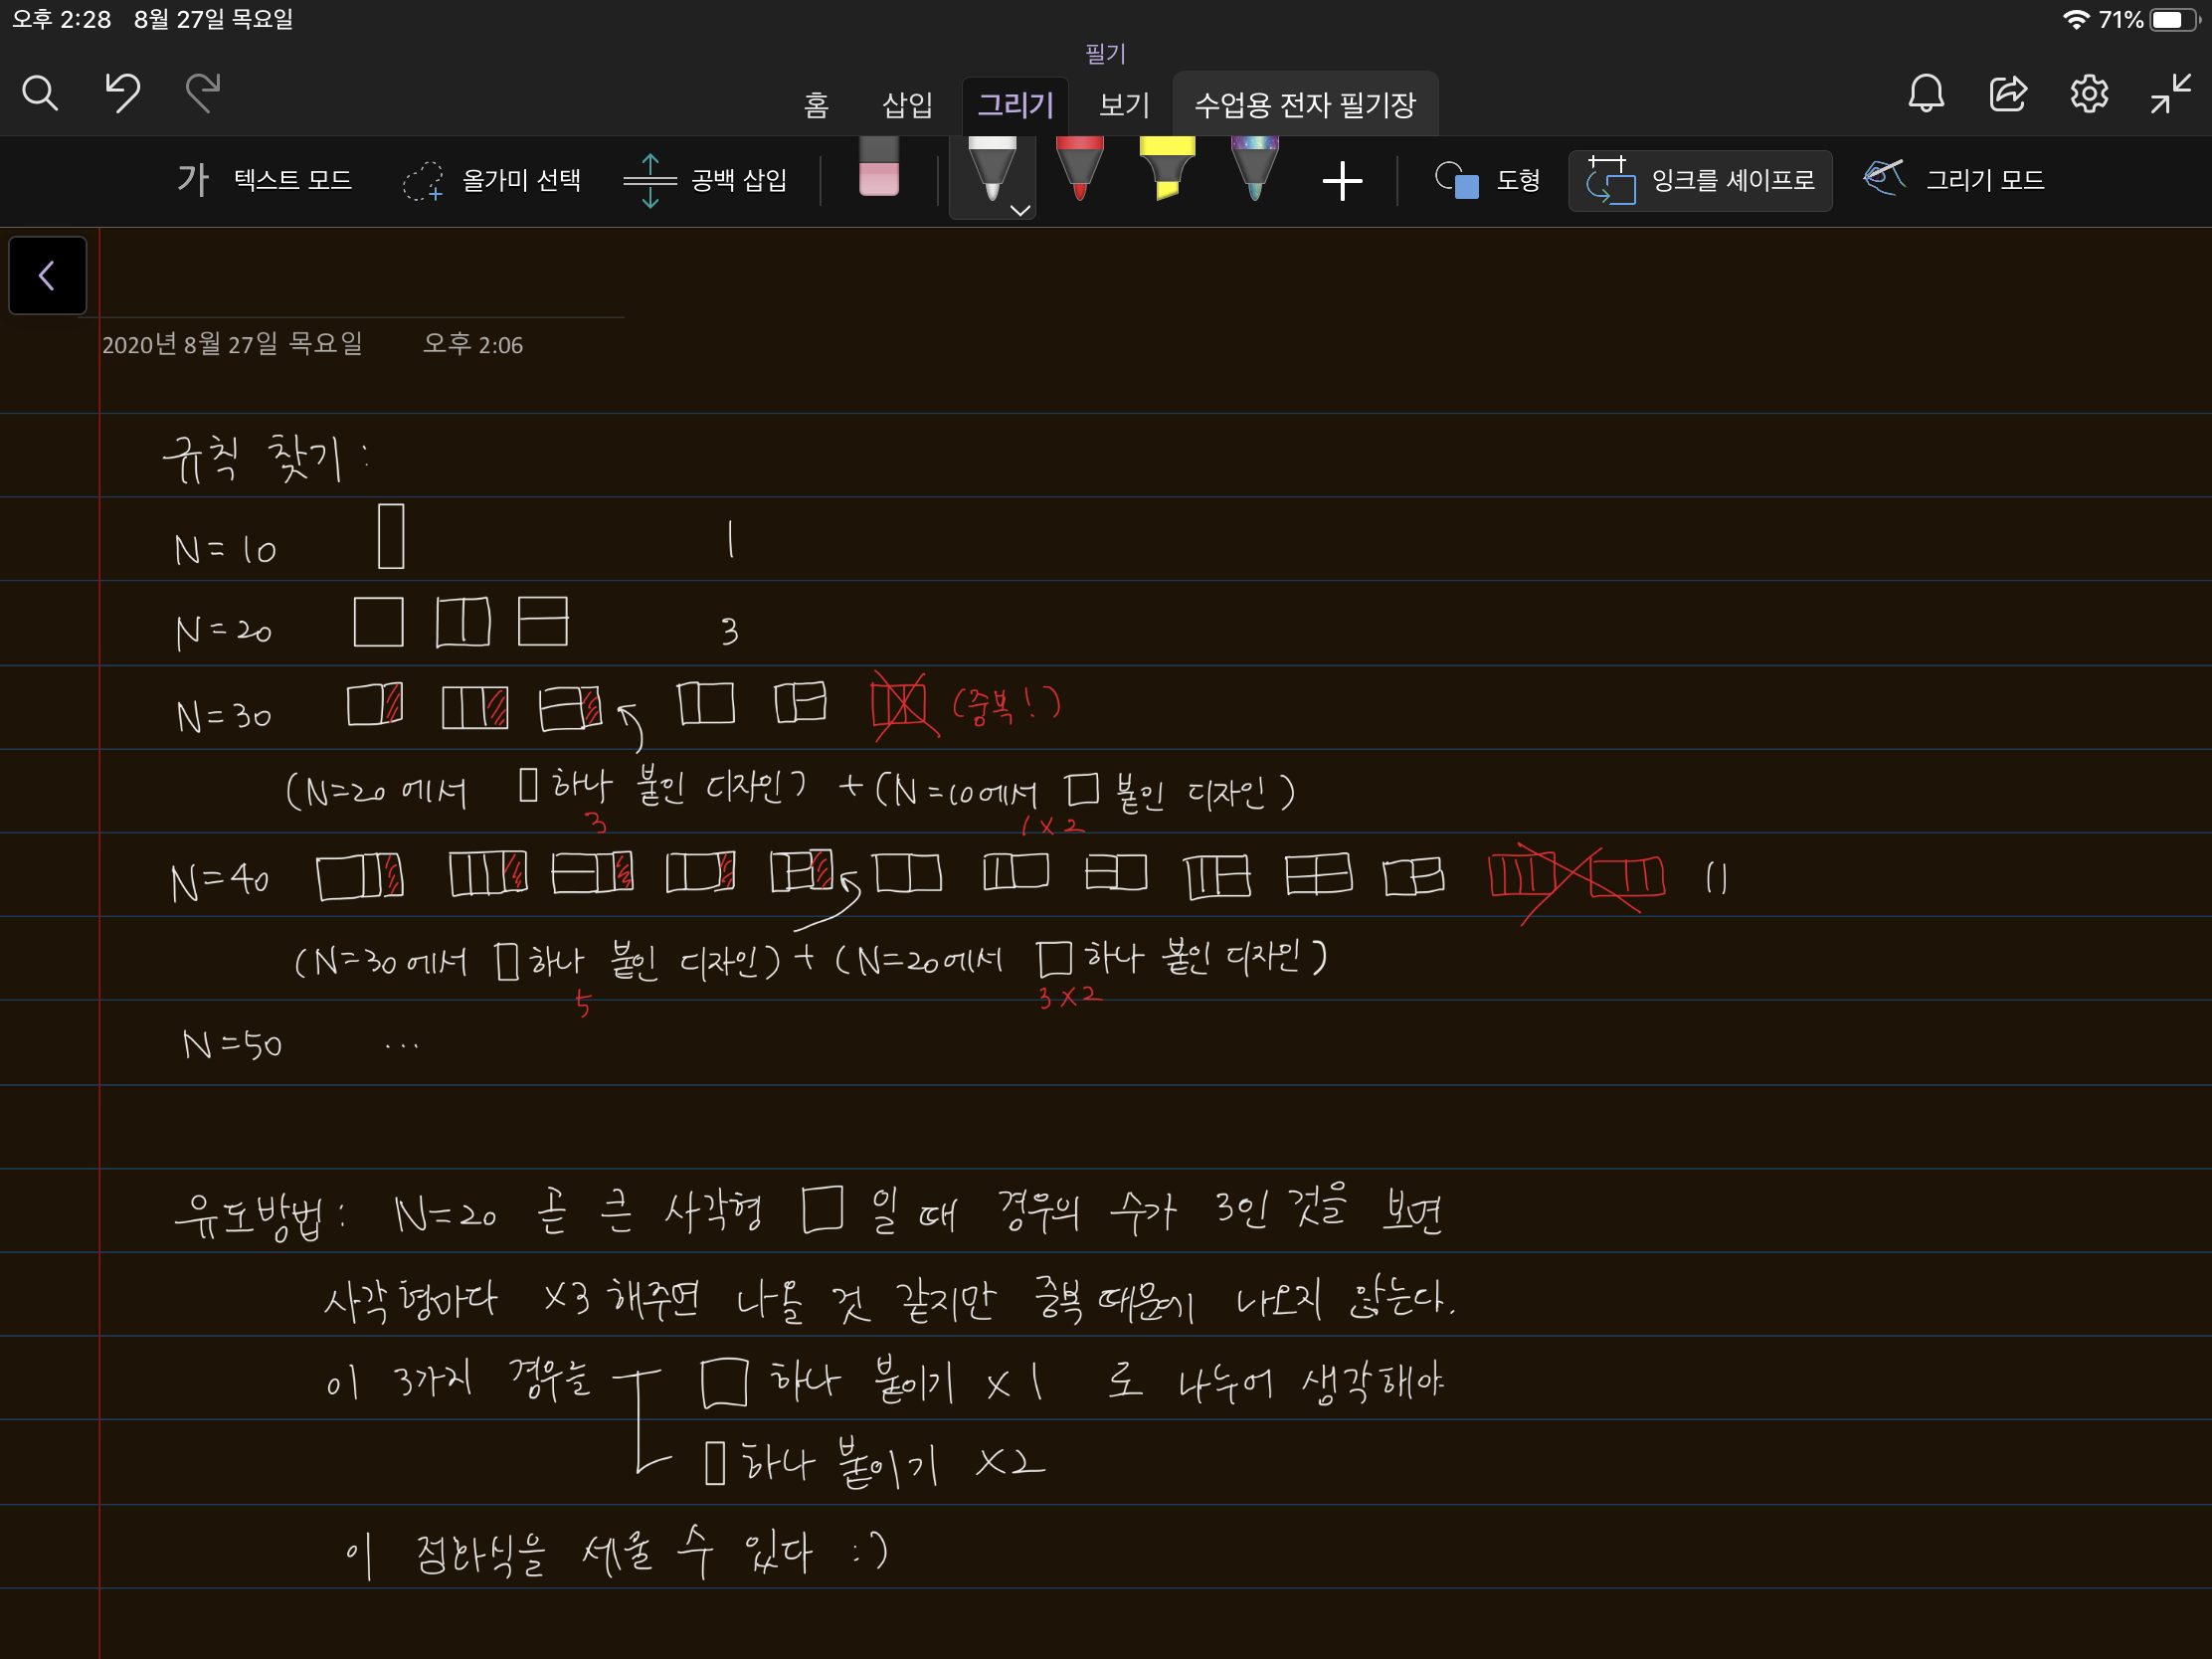 오후 2:28 8월 27일 목요일 71%
필기
홈 삽입 그리기 보기 수업용 전자 필기장
가 텍스트 모드 올가미 선택 공백 삽입 도형 잉크를 셰이프로 그리기 모드
2020년 8월 27일 목요일 오후 2:06
규칙 찾기 :
N=10 1
N=20 3
N=30 (중복!)
(N=20 에서 하나 붙인 디자인) + (N=10에서 붙인 디자인)
3 1×2
N=40 11
(N=30 에서 하나 붙인 디자인) + (N=20에서 하나 붙인 디자인)
5 3×2
N=50 ...
유도방법 : N=20 곧 큰 사각형 일 때 경우의 수가 3인 것을 보면
사각형마다 ×3 해주면 나올 것 같지만 중복 때문에 나오지 않는다.
이 3가지 경우를 하나 붙이기 ×1 로 나누어 생각해야
하나 붙이기 ×2
이 점화식을 세울 수 있다 :)